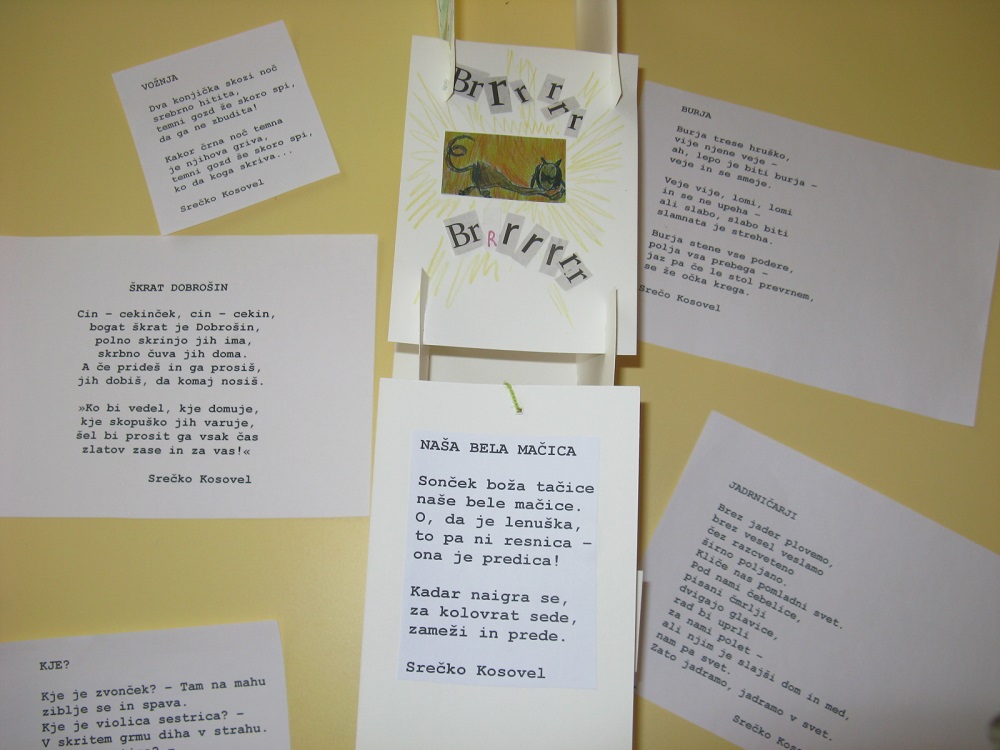 VOŽNJA
Dva konjička skozi noč
srebrno hitita,
temni gozd že skoro spi,
da ga ne zbudita!
Kakor črna noč temna
je njihova griva,
temni gozd še skoro spi,
ko da koga skriva...
Srečko Kosovel
Brrr rrr
Br Rrrrrr
BURJA
Burja trese hruško,
vije njene veje –
ah, lepo je biti burja –
veje in se smeje.
Veje vije, lomi, lomi
in se ne upeha –
ali slabo, slabo biti
slamnata je streha.
Burja stene vse podere,
polja vsa prebega –
jaz pa če le stol prevrnem,
se že očka krega.
Srečo Kosovel
ŠKRAT DOBROŠIN
Cin – cekinček, cin – cekin,
bogat škrat je Dobrošin,
polno skrinjo jih ima,
skrbno čuva jih doma.
A če prideš in ga prosiš,
jih dobiš, da komaj nosiš.
»Ko bi vedel, kje domuje,
kje skopuško jih varuje,
šel bi prosit ga vsak čas
zlatov zase in za vas!«
Srečko Kosovel
NAŠA BELA MAČICA
Sonček boža tačice
naše bele mačice.
O, da je lenuška,
to pa ni resnica –
ona je predica!
Kadar naigra se,
za kolovrat sede,
zameži in prede.
Srečko Kosovel
JADRNIČARJI
Brez jader plovemo,
brez vesel veslamo
čez razcveteno
širno poljano.
Kliče nas pomladni svet.
Pod nami čebelice,
pisani čmrlji
dvigajo glavice,
rad bi uprli
za nami polet –
ali njim je slajši dom in med,
nam pa svet.
Zato jadramo, jadramo v svet.
Srečko Kosovel
KJE?
Kje je zvonček? – Tam na mahu
ziblje se in spava.
Kje je violica sestrica? –
V skritem grmu diha v strahu.